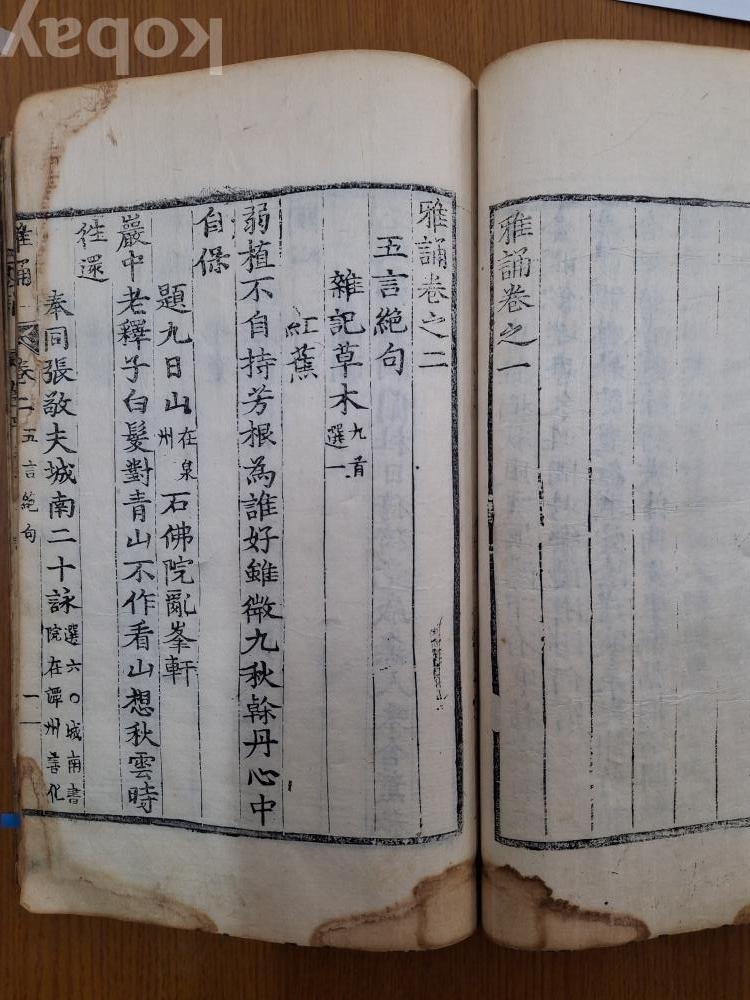 kobay
雅誦卷之一
雅誦卷之二
五言絶句
雜記草木九首選一
紅蕉
弱植不自持芳根為誰好雖微九秋榦丹心中
自保
題九日山在泉州石佛院亂峯軒
巖中老釋子白髮對青山不作看山想秋雲時
往還
奉同張敬夫城南二十詠選六〇城南書院在潭州善化
雅誦 卷二 五言絶句 一